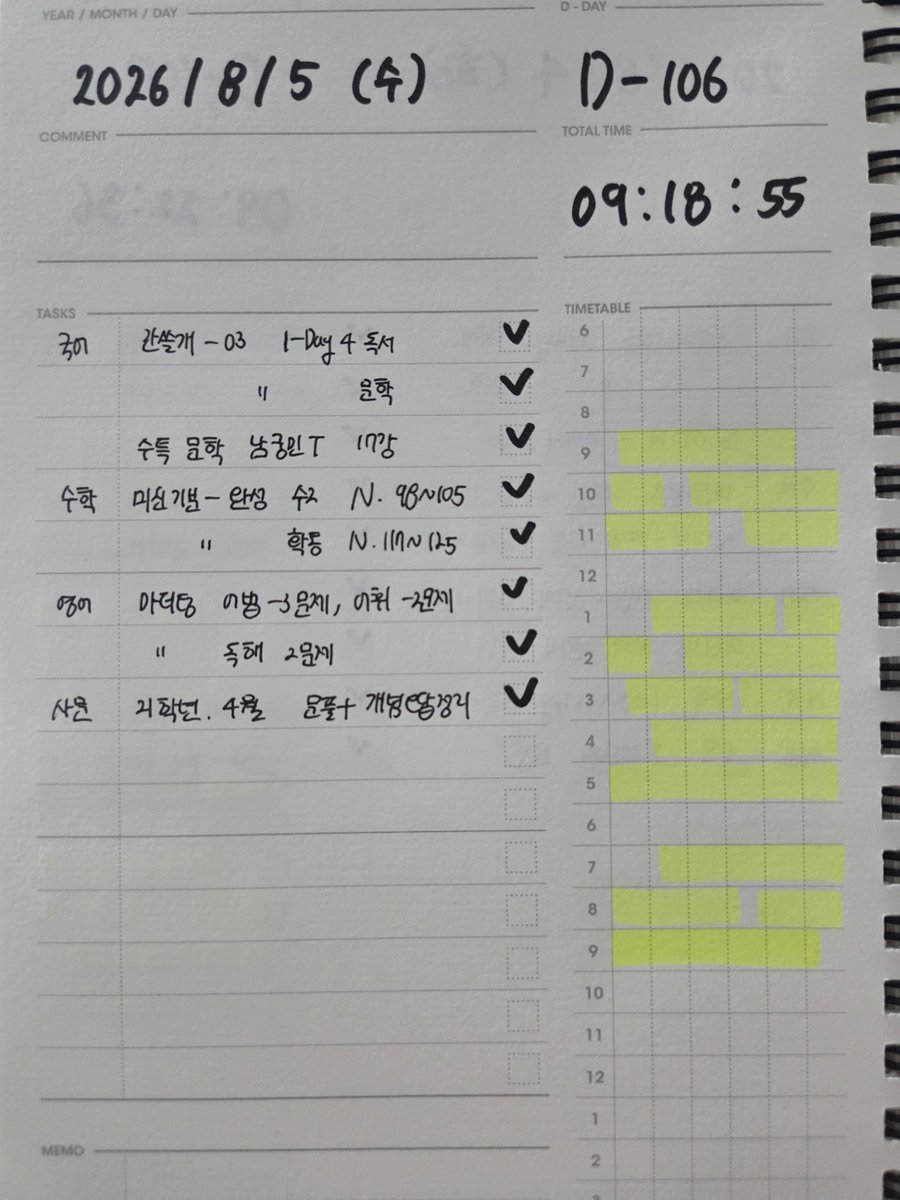 YEAR / MONTH / DAY
D - DAY
2026 / 8 / 5 (수)
D-106
COMMENT
TOTAL TIME
09:18:55
TASKS
TIMETABLE
국어 간쓸개 - 03 1-Day 4 독서
" 문학
수특 문학 남궁민T 17강
수학 미친기분 - 완성 수2 N. 98~105
" 확통 N. 117~125
영어 마더텅 어법 → 3문제, 어휘 → 2문제
" 독해 2문제
사문 고3학년. 4월 문풀+ 개념
6
7
8
9
10
11
12
1
2
3
4
5
6
7
8
9
10
11
12
1
2
MEMO